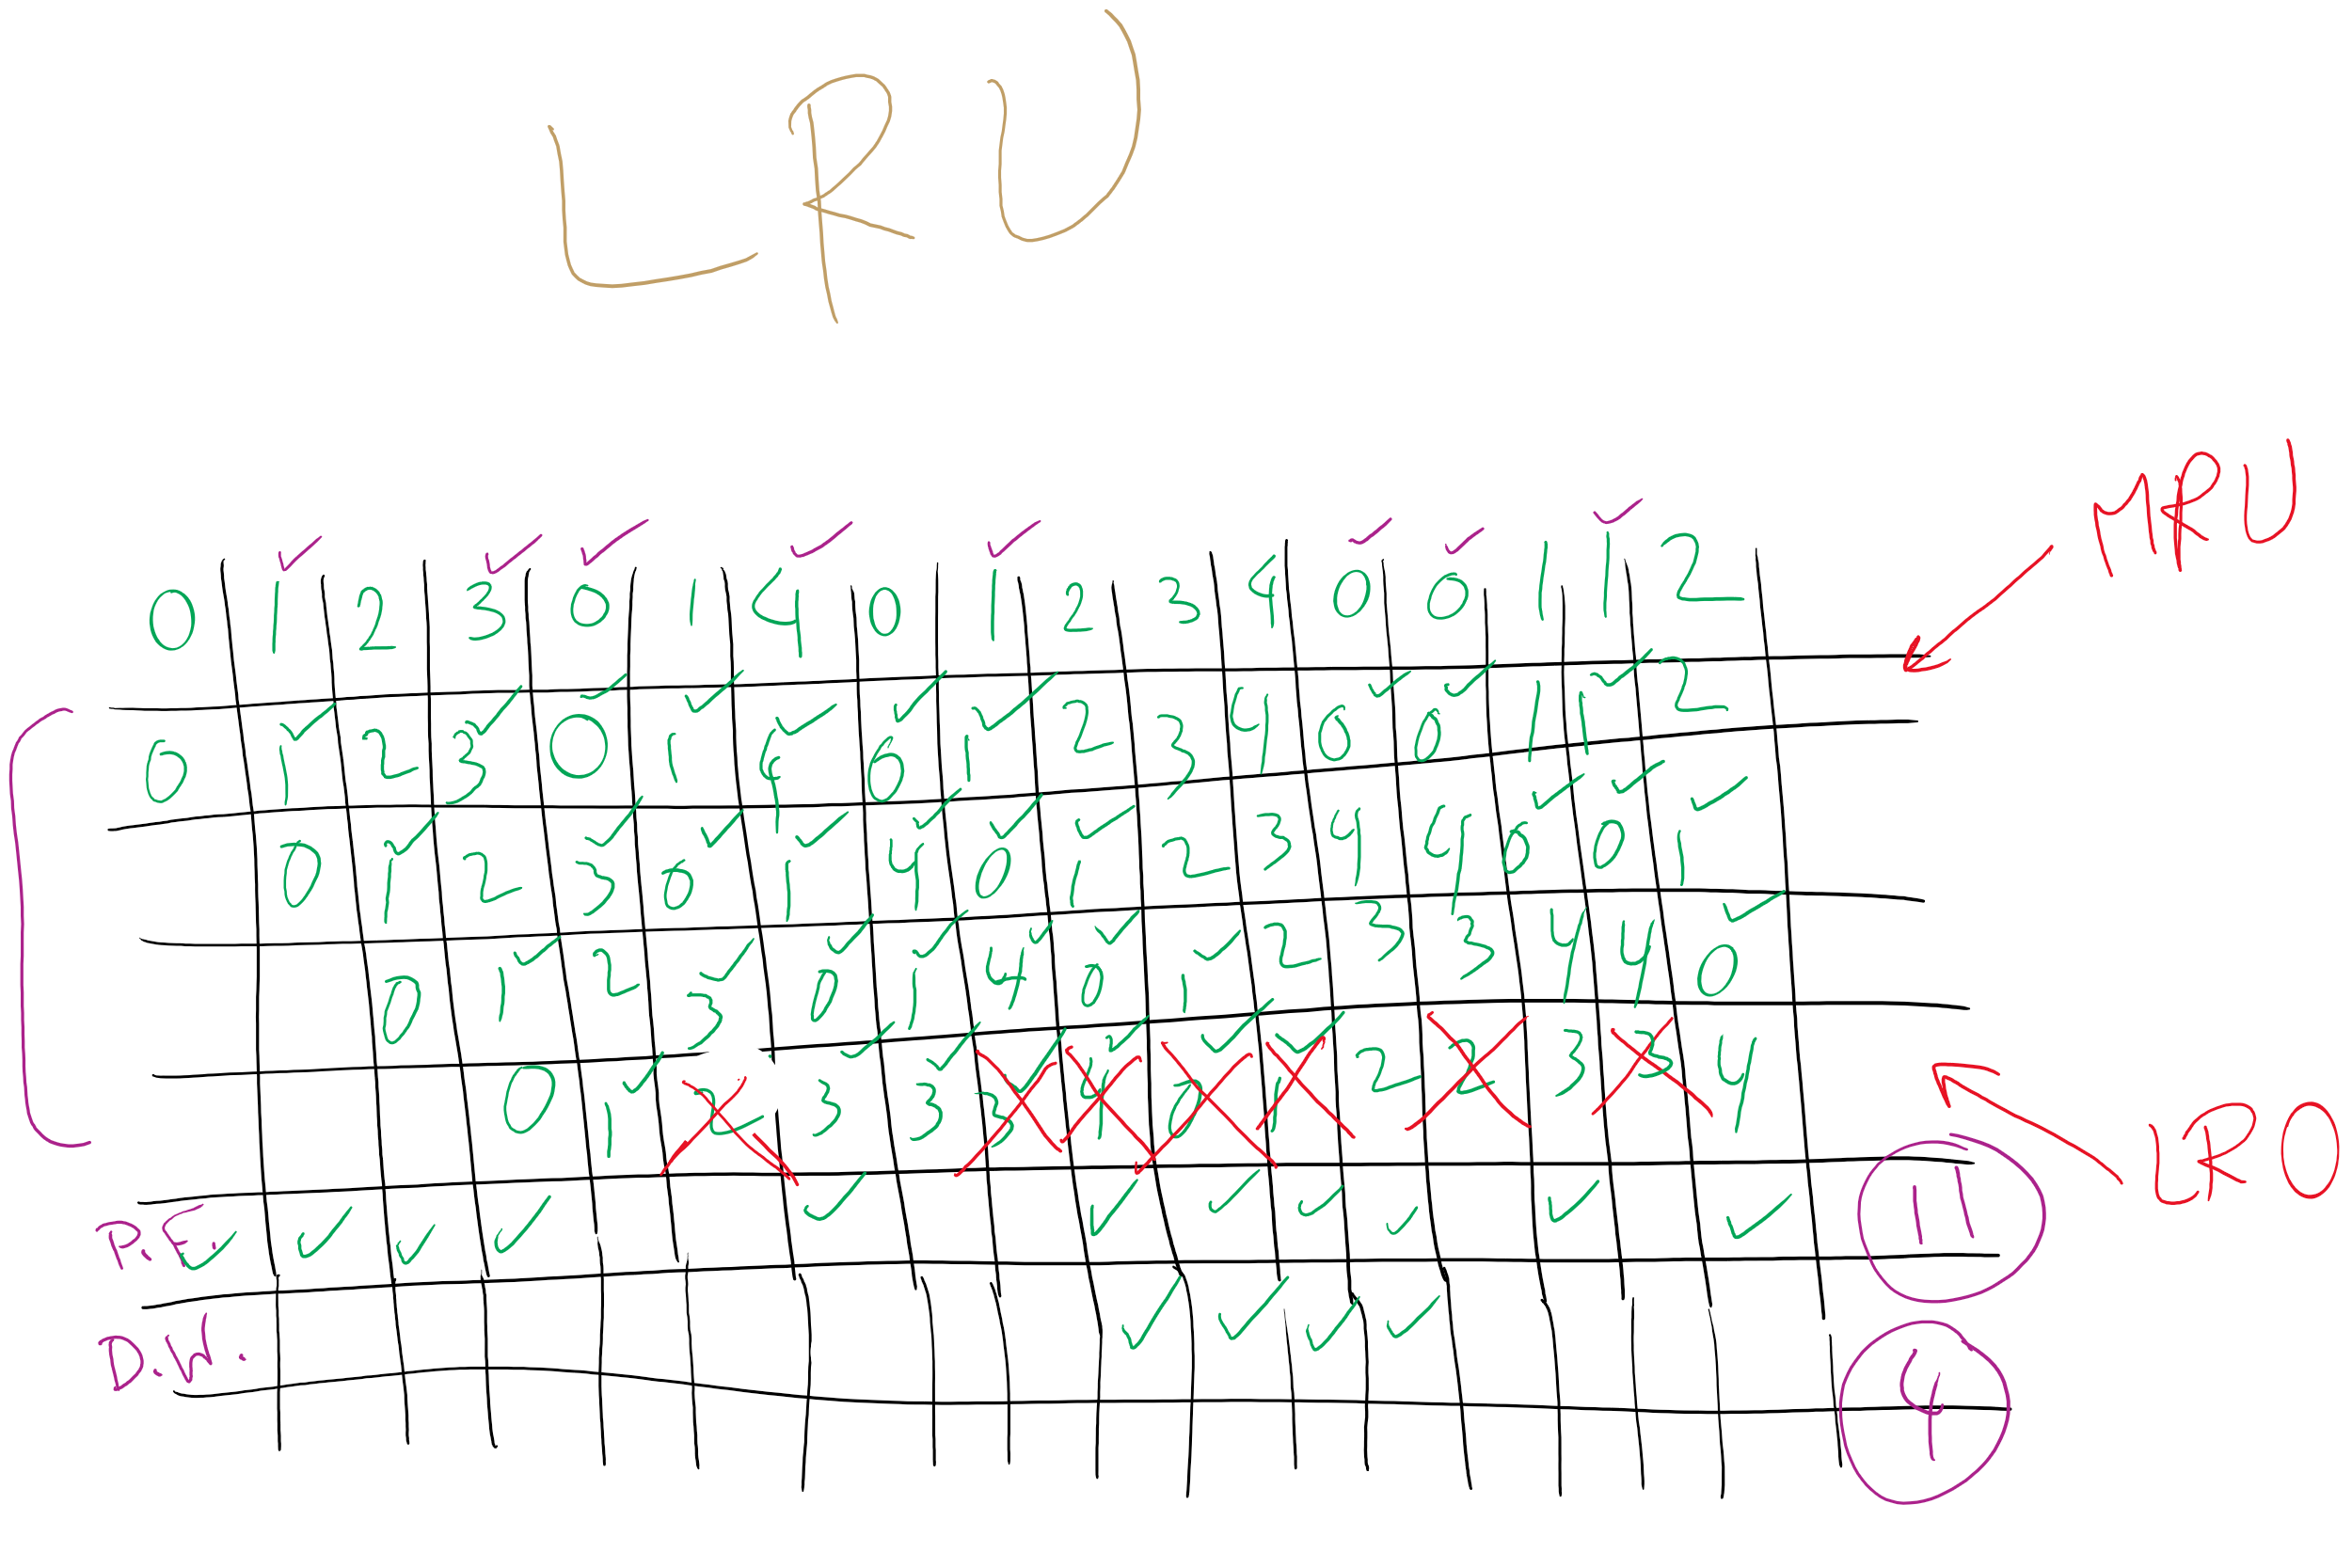 LRU
MRU
0 1 2 3 0 1 4 0 1 2 3 4 0 0 1 1 2
0 1 2 3 0 1 4 0 1 2 3 4 0 0 1 1 2
0 1 2 3 0 1 4 0 1 2 3 4 4 0 0 1
0 1 2 3 0 1 4 0 1 2 3 3 4 4 0
0 1 2 3 3 2 4 0 1 2 2 3 3 4
LRU
P.F. 11
D.W. 4